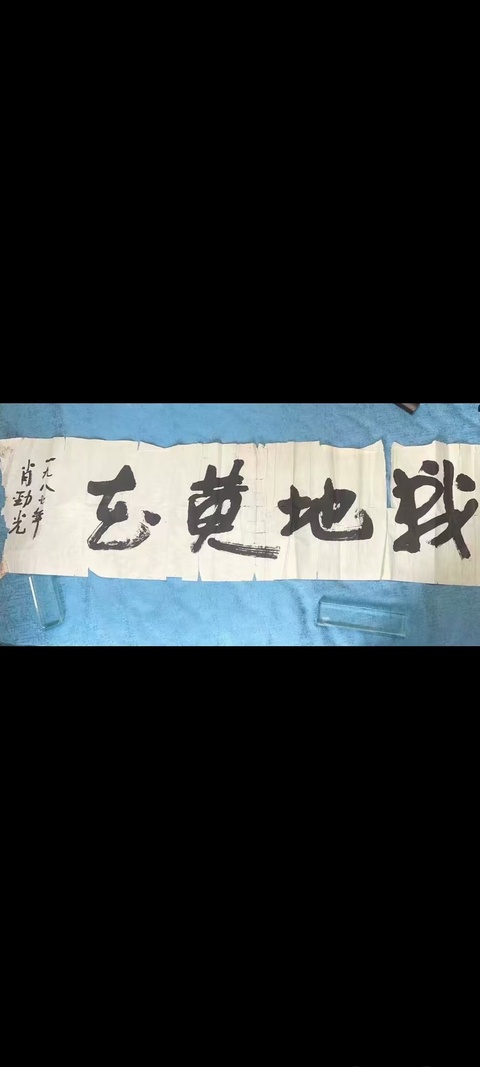 战地黄花
一九八七年
肖劲光